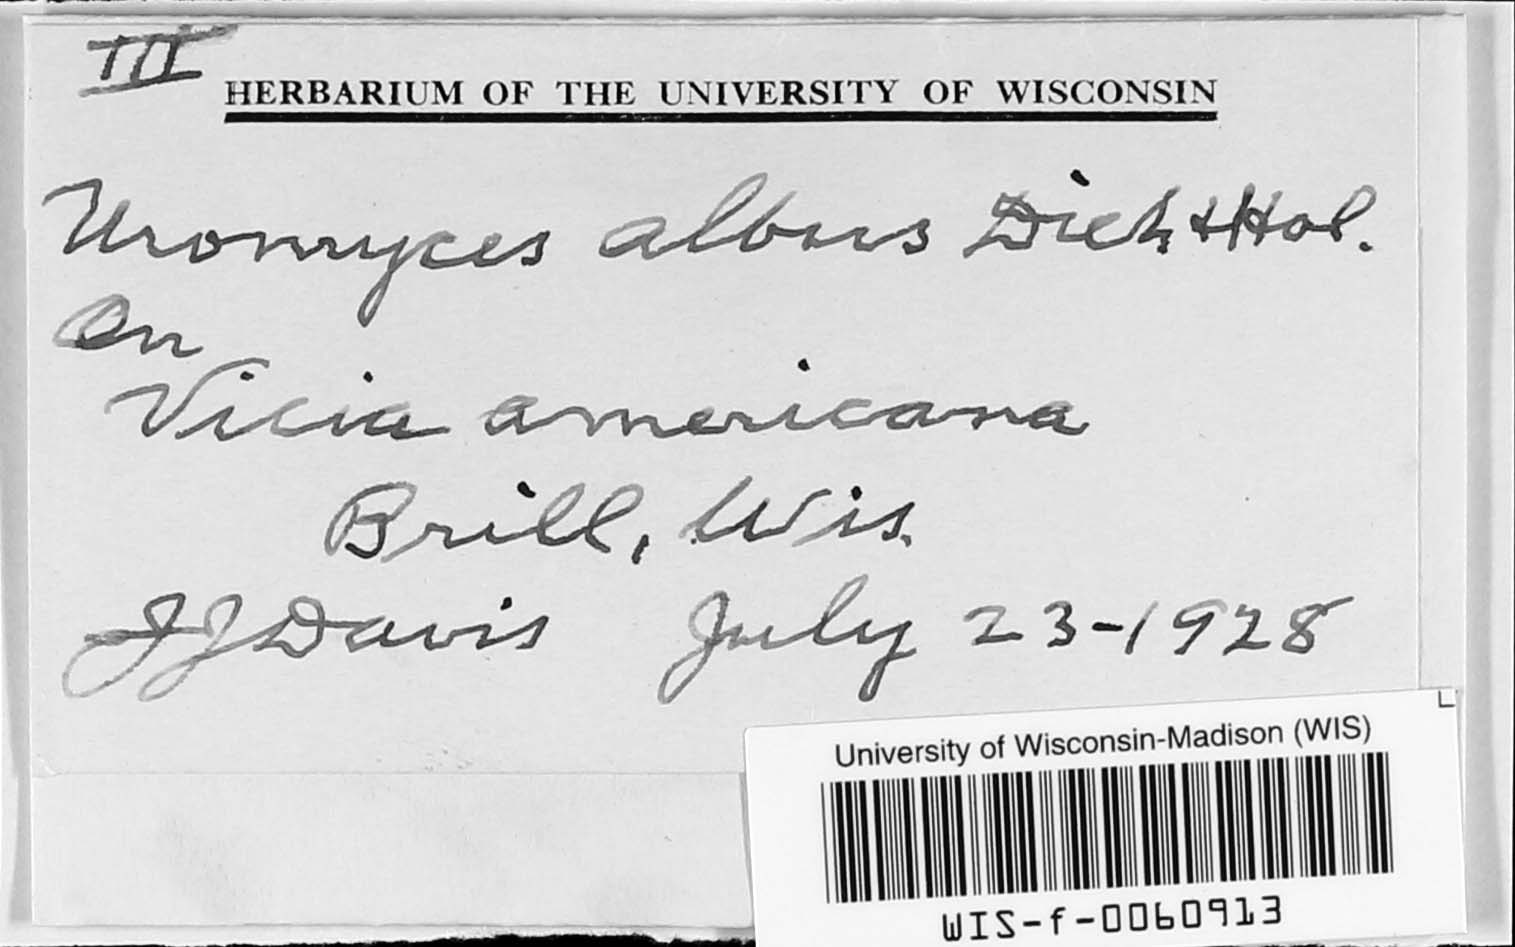 III
HERBARIUM OF THE UNIVERSITY OF WISCONSIN
Uromyces albus Diet & Hol.
On
Vicia americana
Brill, Wis.
JJ Davis July 23-1928
University of Wisconsin-Madison (WIS)
WIS-f-0060913